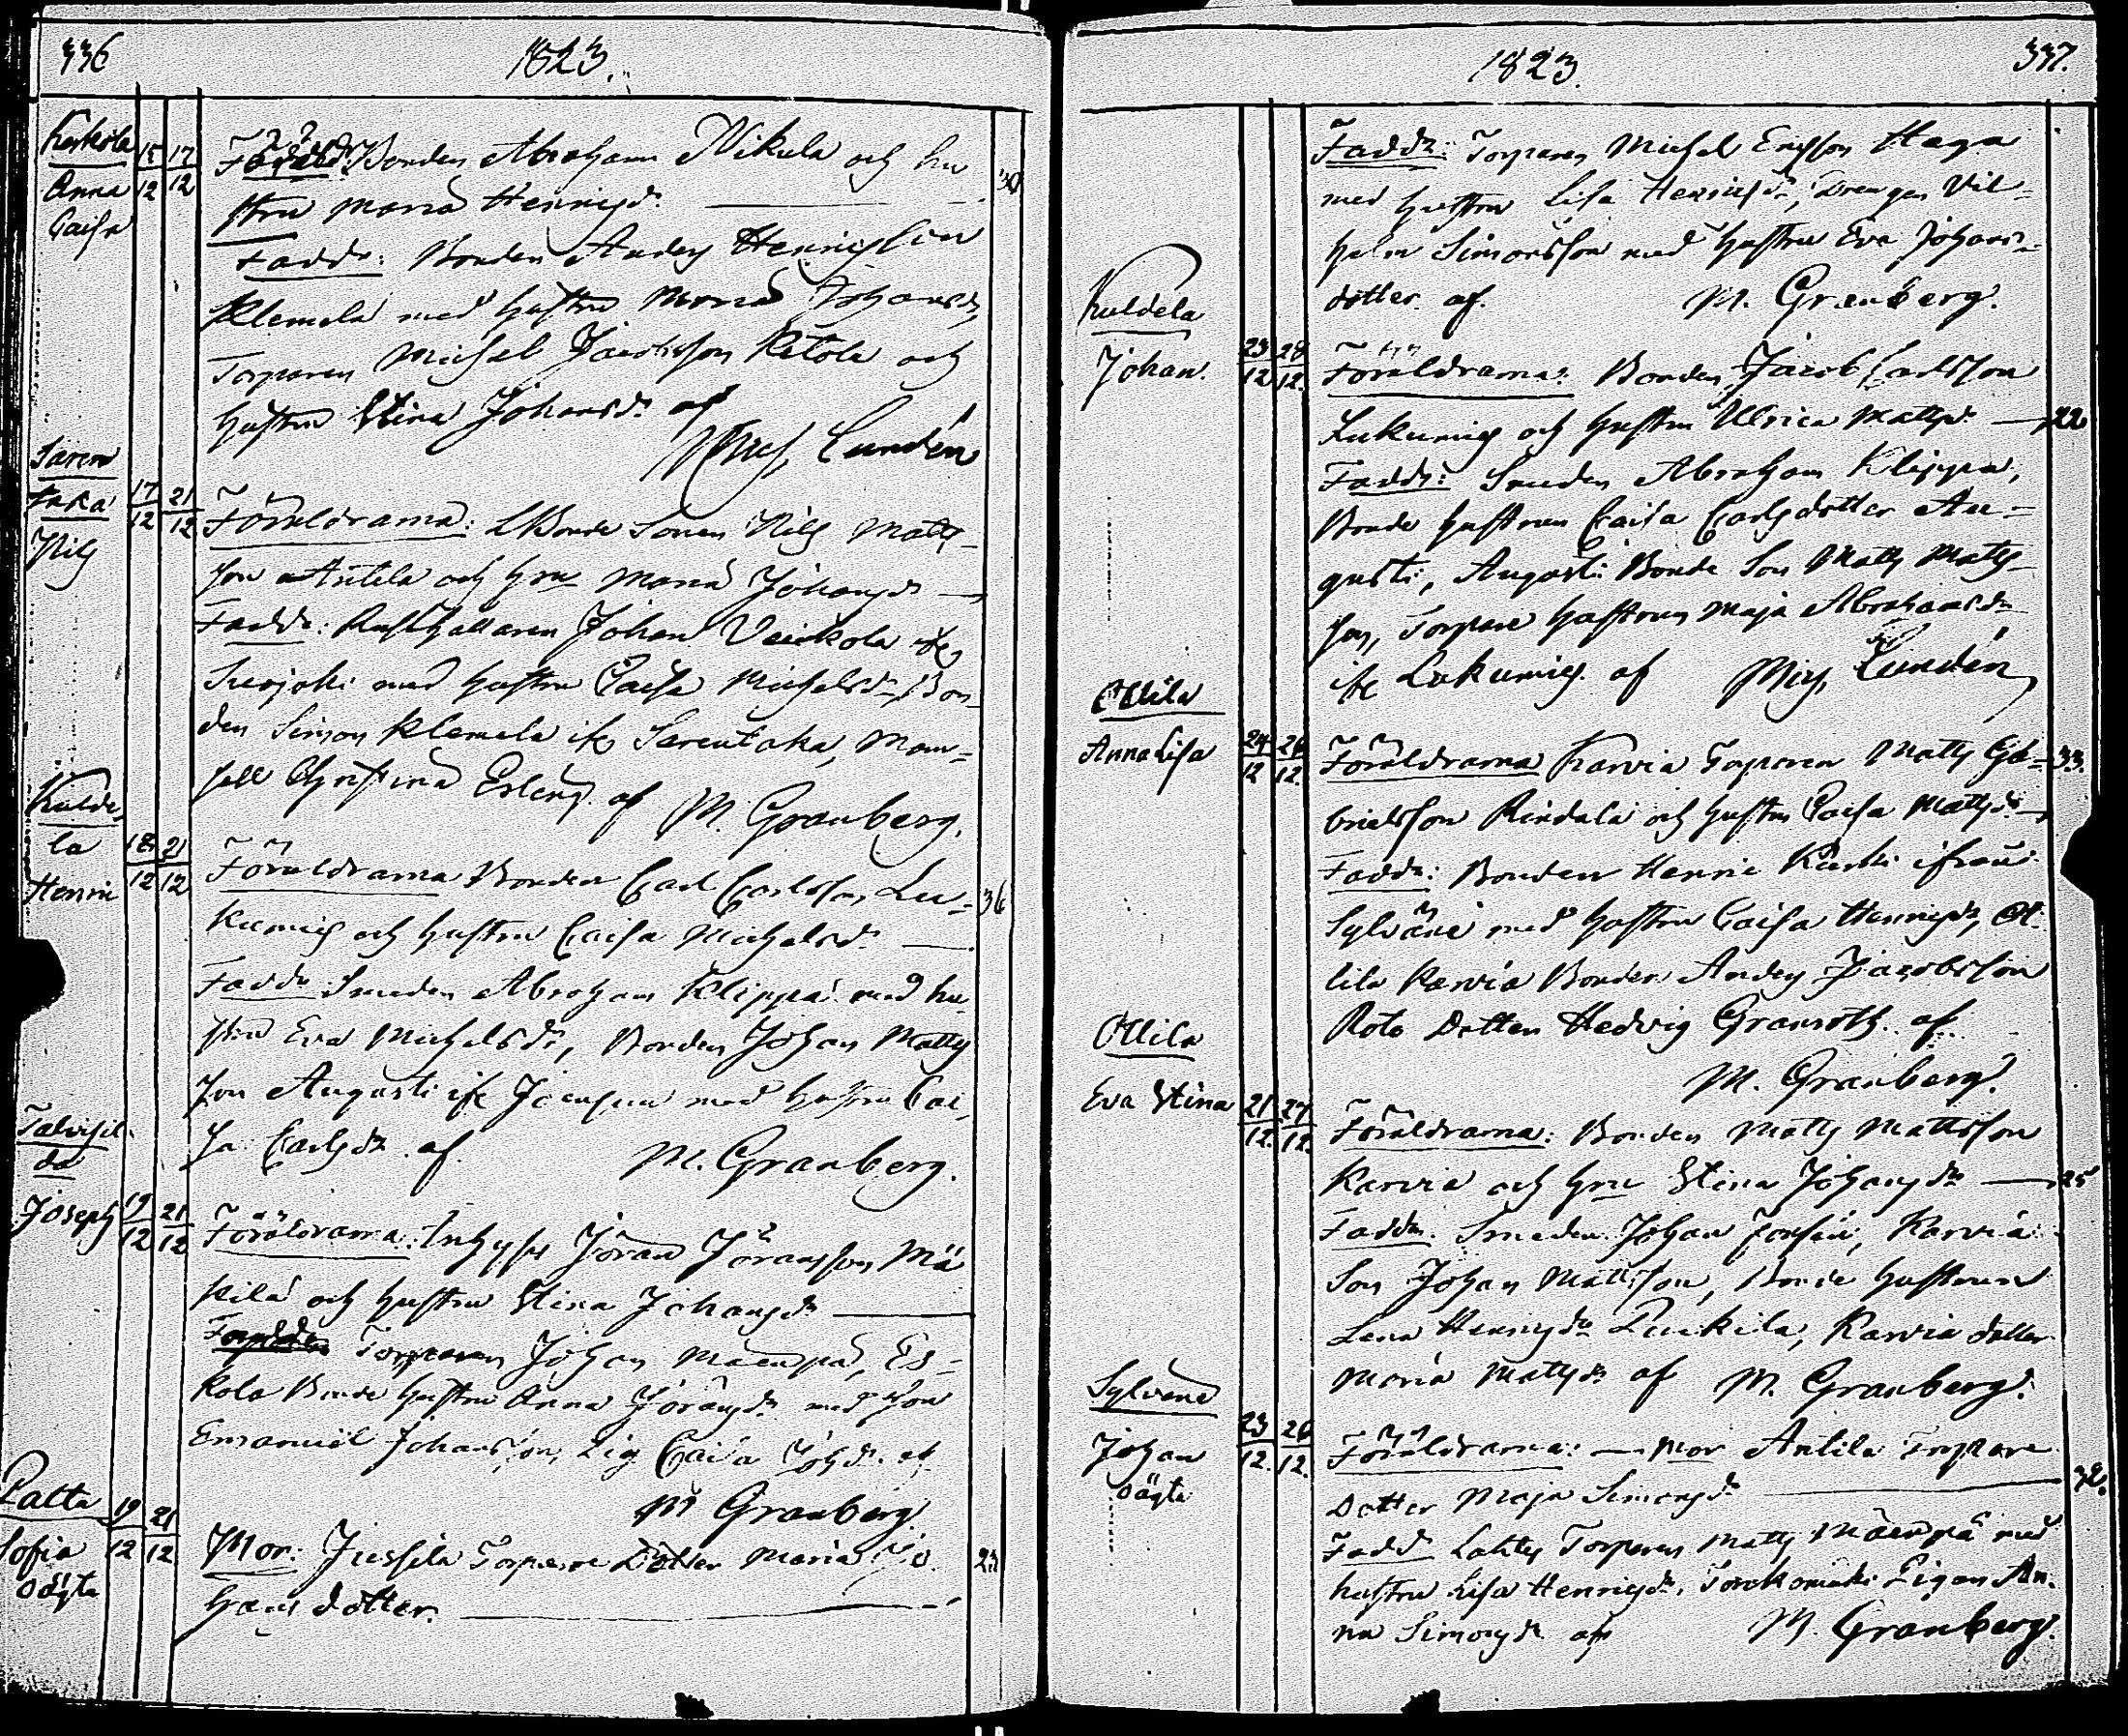 336
1823.
Kuskola
Anna
Caisa
15 17
12 12
Föräld: Bonden Abraham Nikula och hu
stru Maria Henrigsdr. —
30
Faddr: Bonden Anders Henrigsson
Klemela med hustru Maria Johansdr,
Torparen Michel Jacobsson Kitola och
hustru Stina Johansdr af
Mich. Lundén
Saren
taka
Nils
17 21
12 12
Föräldrarna: Bonde Sonen Nils Matts
son Antila och hru Maria Johansdr —
Faddr: Rusthållaren Johan Vaickola
med hustru Caisa Michelsdr, Bon
den Simon Klemela ifr Sarentaka, Mam=
sell Christina Erlens. af M. Granberg.
Kulde
la
Henric
18 21
12 12
Föräldrarna Bonden Carl Carlsson Lu=
36
kumies och hustru Caisa Michelsdr —
Faddr Smeden Abraham Klippa med hu
stru Eva Michelsdr, Bonden Johan Matts
son Augusti ifr med hustru Cai
sa Carlsdr. af M. Granberg.
Talvisil
da
Joseph
19 21
12 12
Föräldrarna: Inhyses Jöran Jöransson Mä
kilä och hustru Stina Johansdr —
Torparen Johan Mäenpä, Es=
kola Bonde hustru Anna Jöransdr med son
Emanuel Johansson, Pig Caisa Johsdr. af
M Granberg.
Patta
Sofia
oägta
19 21
12 12
Mor: Jussila Torpare Dotter Maria Jo
23
hans dotter. —
1823
337.
Faddr: Torparen Michel Ericsson Haga
med hustru Lisa Henricsdr, Drengen Vil=
helm Simonsson med hustru Eva Johans=
dotter. af. M. Granberg.
Kuldela
Johan.
23 28
12 12.
Föräldrarna: Bonden Jacob Carlsson
Lukumies och hustru Ulrica Mattsdr — 22
Faddr: Smeden Abraham Klippa,
Bonde hustrun Caisa Carlsdotter Au=
gusti, Augusti Bonde Son Matts Matts
son, Torpare hustrun Maja Abrahamsdr
ifr Lukumies. af Mich. Lundén
Ollila
Anna Lisa
24 26
12 12.
Föräldrarna Karvia Torparen Matts Ga= 33.
brielsson Rindala och hustru Caisa Mattsdr —
Faddr: Bonden Henric Kurki ifrån
Sylväne med hustru Caisa Henrigsdr, Ol=
lila Karvia Bonden Anders Jacobsson
Rote Dotten Hedvig Granroth. af.
M. Granberg.
Ollila
Eva Stina
21 27
12. 12.
Föräldrarna: Bonden Matts Mattsson
Karvia och hru Stina Johansdr — 25
Faddr. Smeden Johan Karvia
Son Johan Mattsson, Bonde hustrun
Lena Henrigsdr Luckila, Karvia dotter
Maria Mattsdr af M. Granberg.
Sylvene
Johan
oägta
23 26
12. 12.
Föräldrarna: — mor Antila Torpare
Dotter Maja Simonsdr — 32.
Fadd Torparen Matts Mäenpä med
hustru Lisa Henrigsdr, Pigan An=
na Simonsdr af M. Granberg.